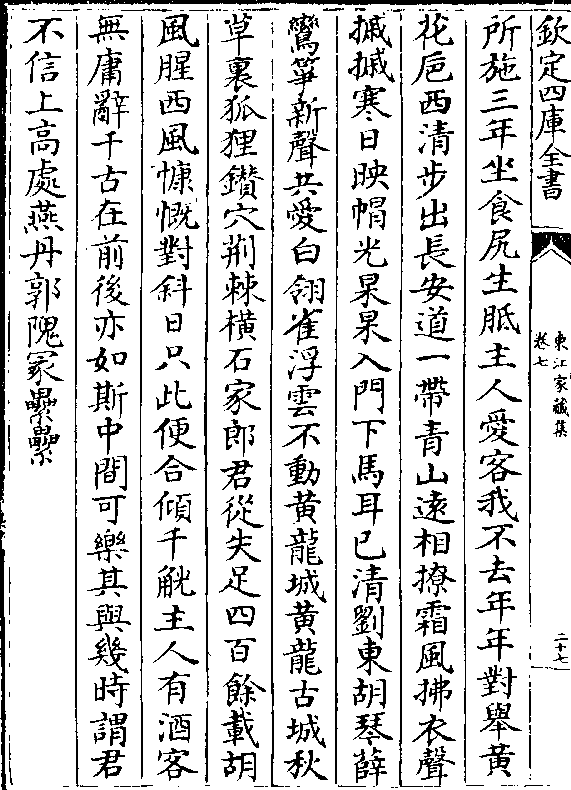 欽定四庫全書
東江家藏集
卷七
二十七
所施三年坐食尻生胝主人愛客我不去年年對舉黃
花巵西清步出長安道一帶青山遠相撩霜風拂衣聲
摵摵寒日映帽光杲杲入門下馬耳已清劉東胡琴薛
鸞箏新聲共愛白翎雀浮雲不動黃龍城黃龍古城秋
草裏狐狸鑽穴荆棘橫石家郎君從失足四百餘載胡
風腥西風慷慨對斜日只此便合傾千觥主人有酒客
無庸辭千古在前後亦如斯中間可樂其與幾時謂君
不信上高處燕丹郭隗冢纍纍